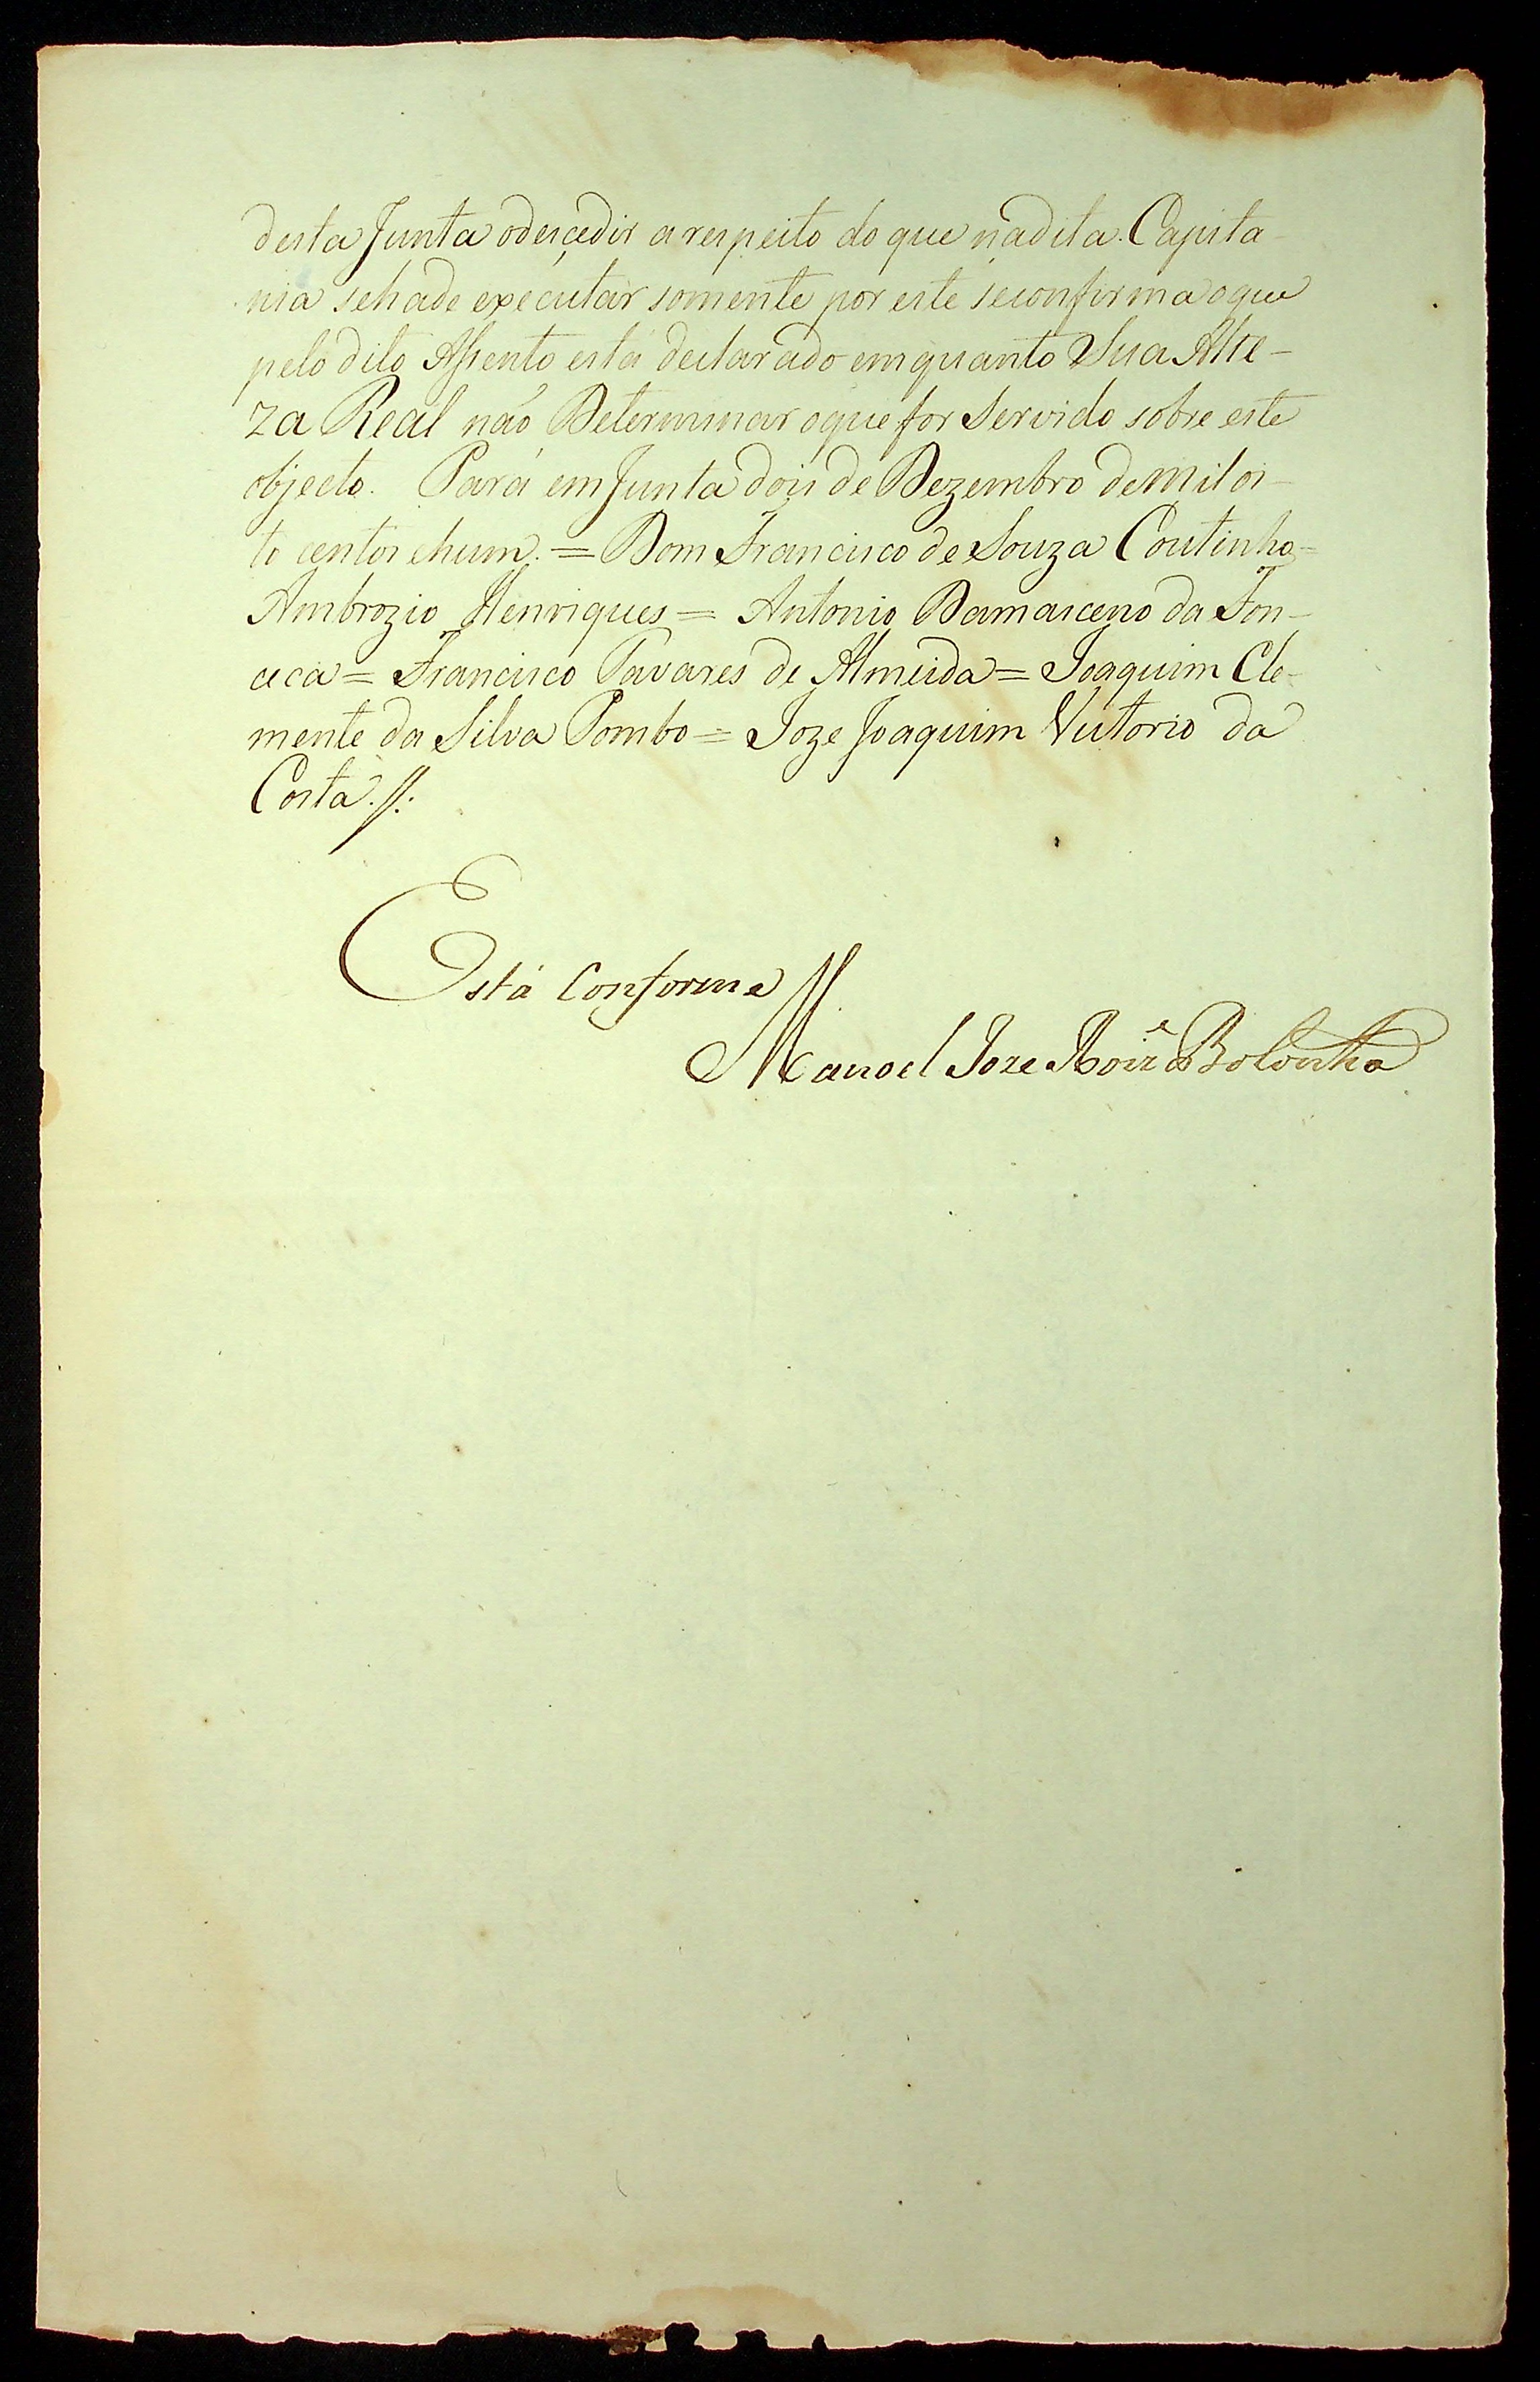 desta Junta odescedir arespeito do que nadita. Capita-
nia sehade executar somente por este seconfirma oque
pelo dito Assento está declarado emquanto Sua Alte-
za Real não Determinar oque for Servido sobre este
objecto. Pará em Junta dois de Dezembro demil oi-
to centos ehum. = Dom Francisco de Souza Coutinho =
Ambrozio Henriques = Antonio Damasceno da Fon-
ceca = Francisco Tavares de Almeida = Joaquim Cle-
mente da Silva Pombo = Joze Joaquim Victorio da
Costa.//:
Está Conforme
Manoel Joze Roiz Bolonha